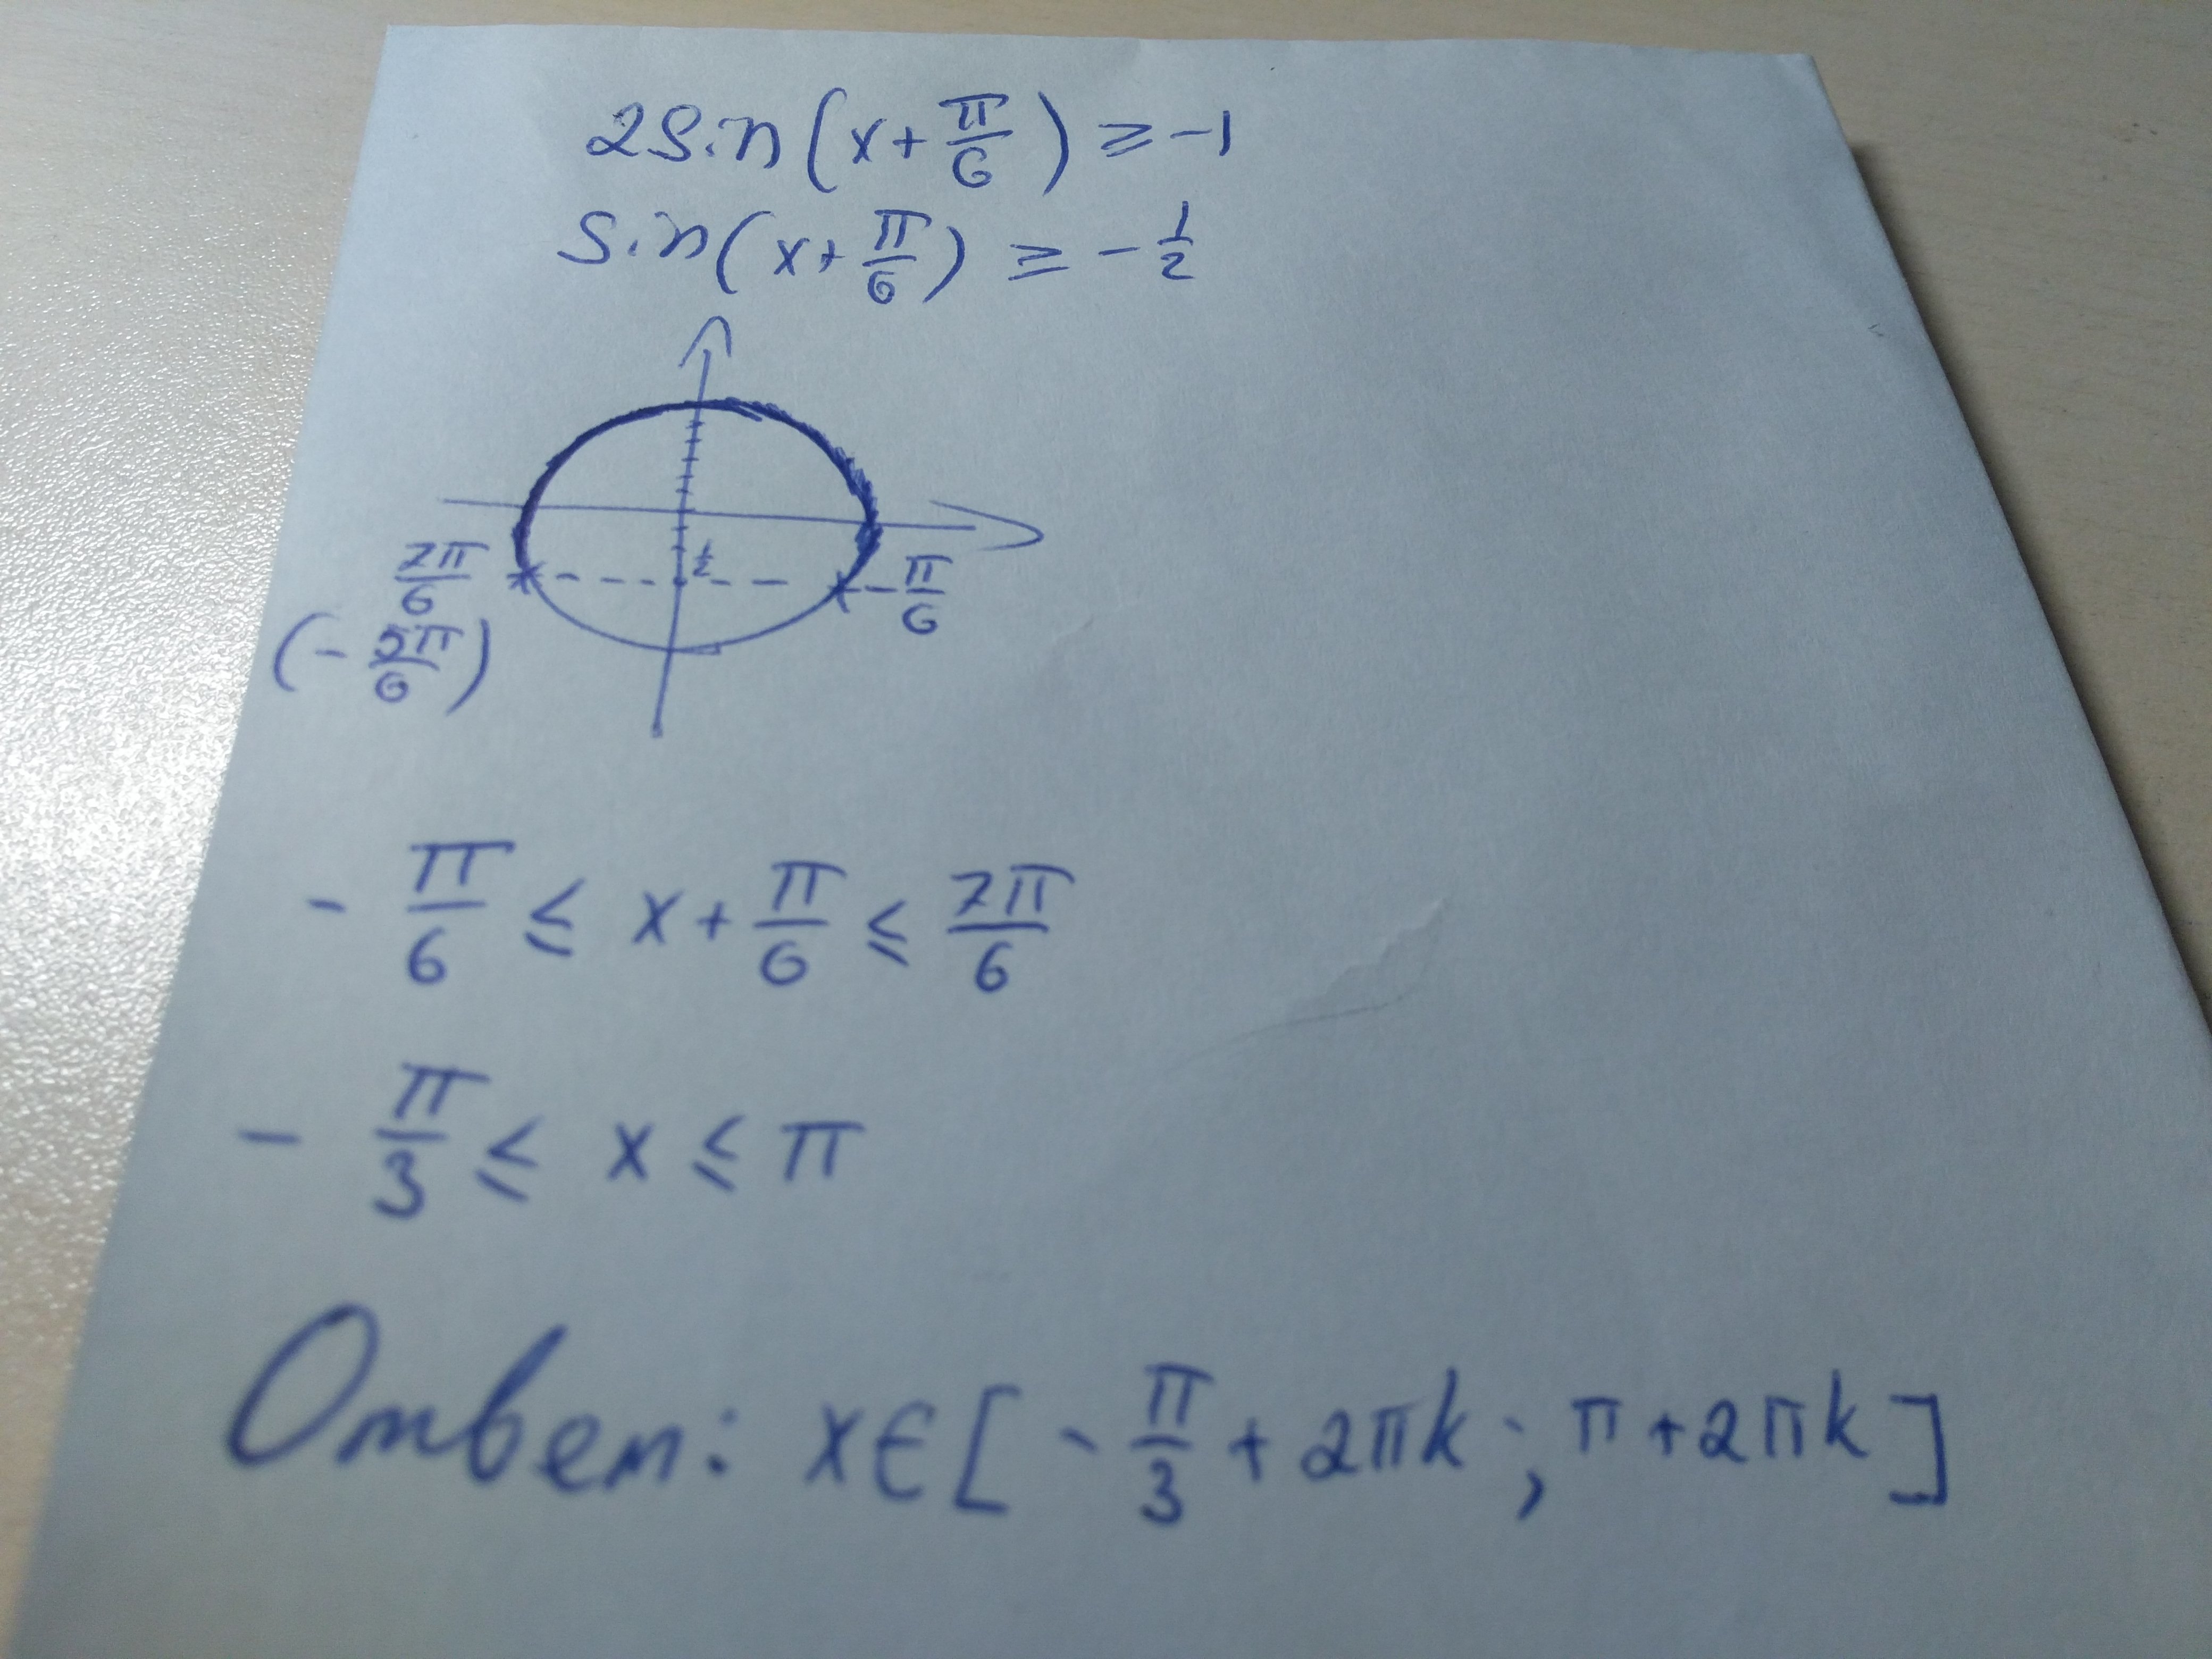 2Sin(x+π/6) ≥ -1
Sin(x+π/6) ≥ -1/2
1/2
7π/6
-π/6
(-5π/6)
-π/6 ≤ x+π/6 ≤ 7π/6
-π/3 ≤ x ≤ π
Ответ: x∈[-π/3+2πk; π+2πk]